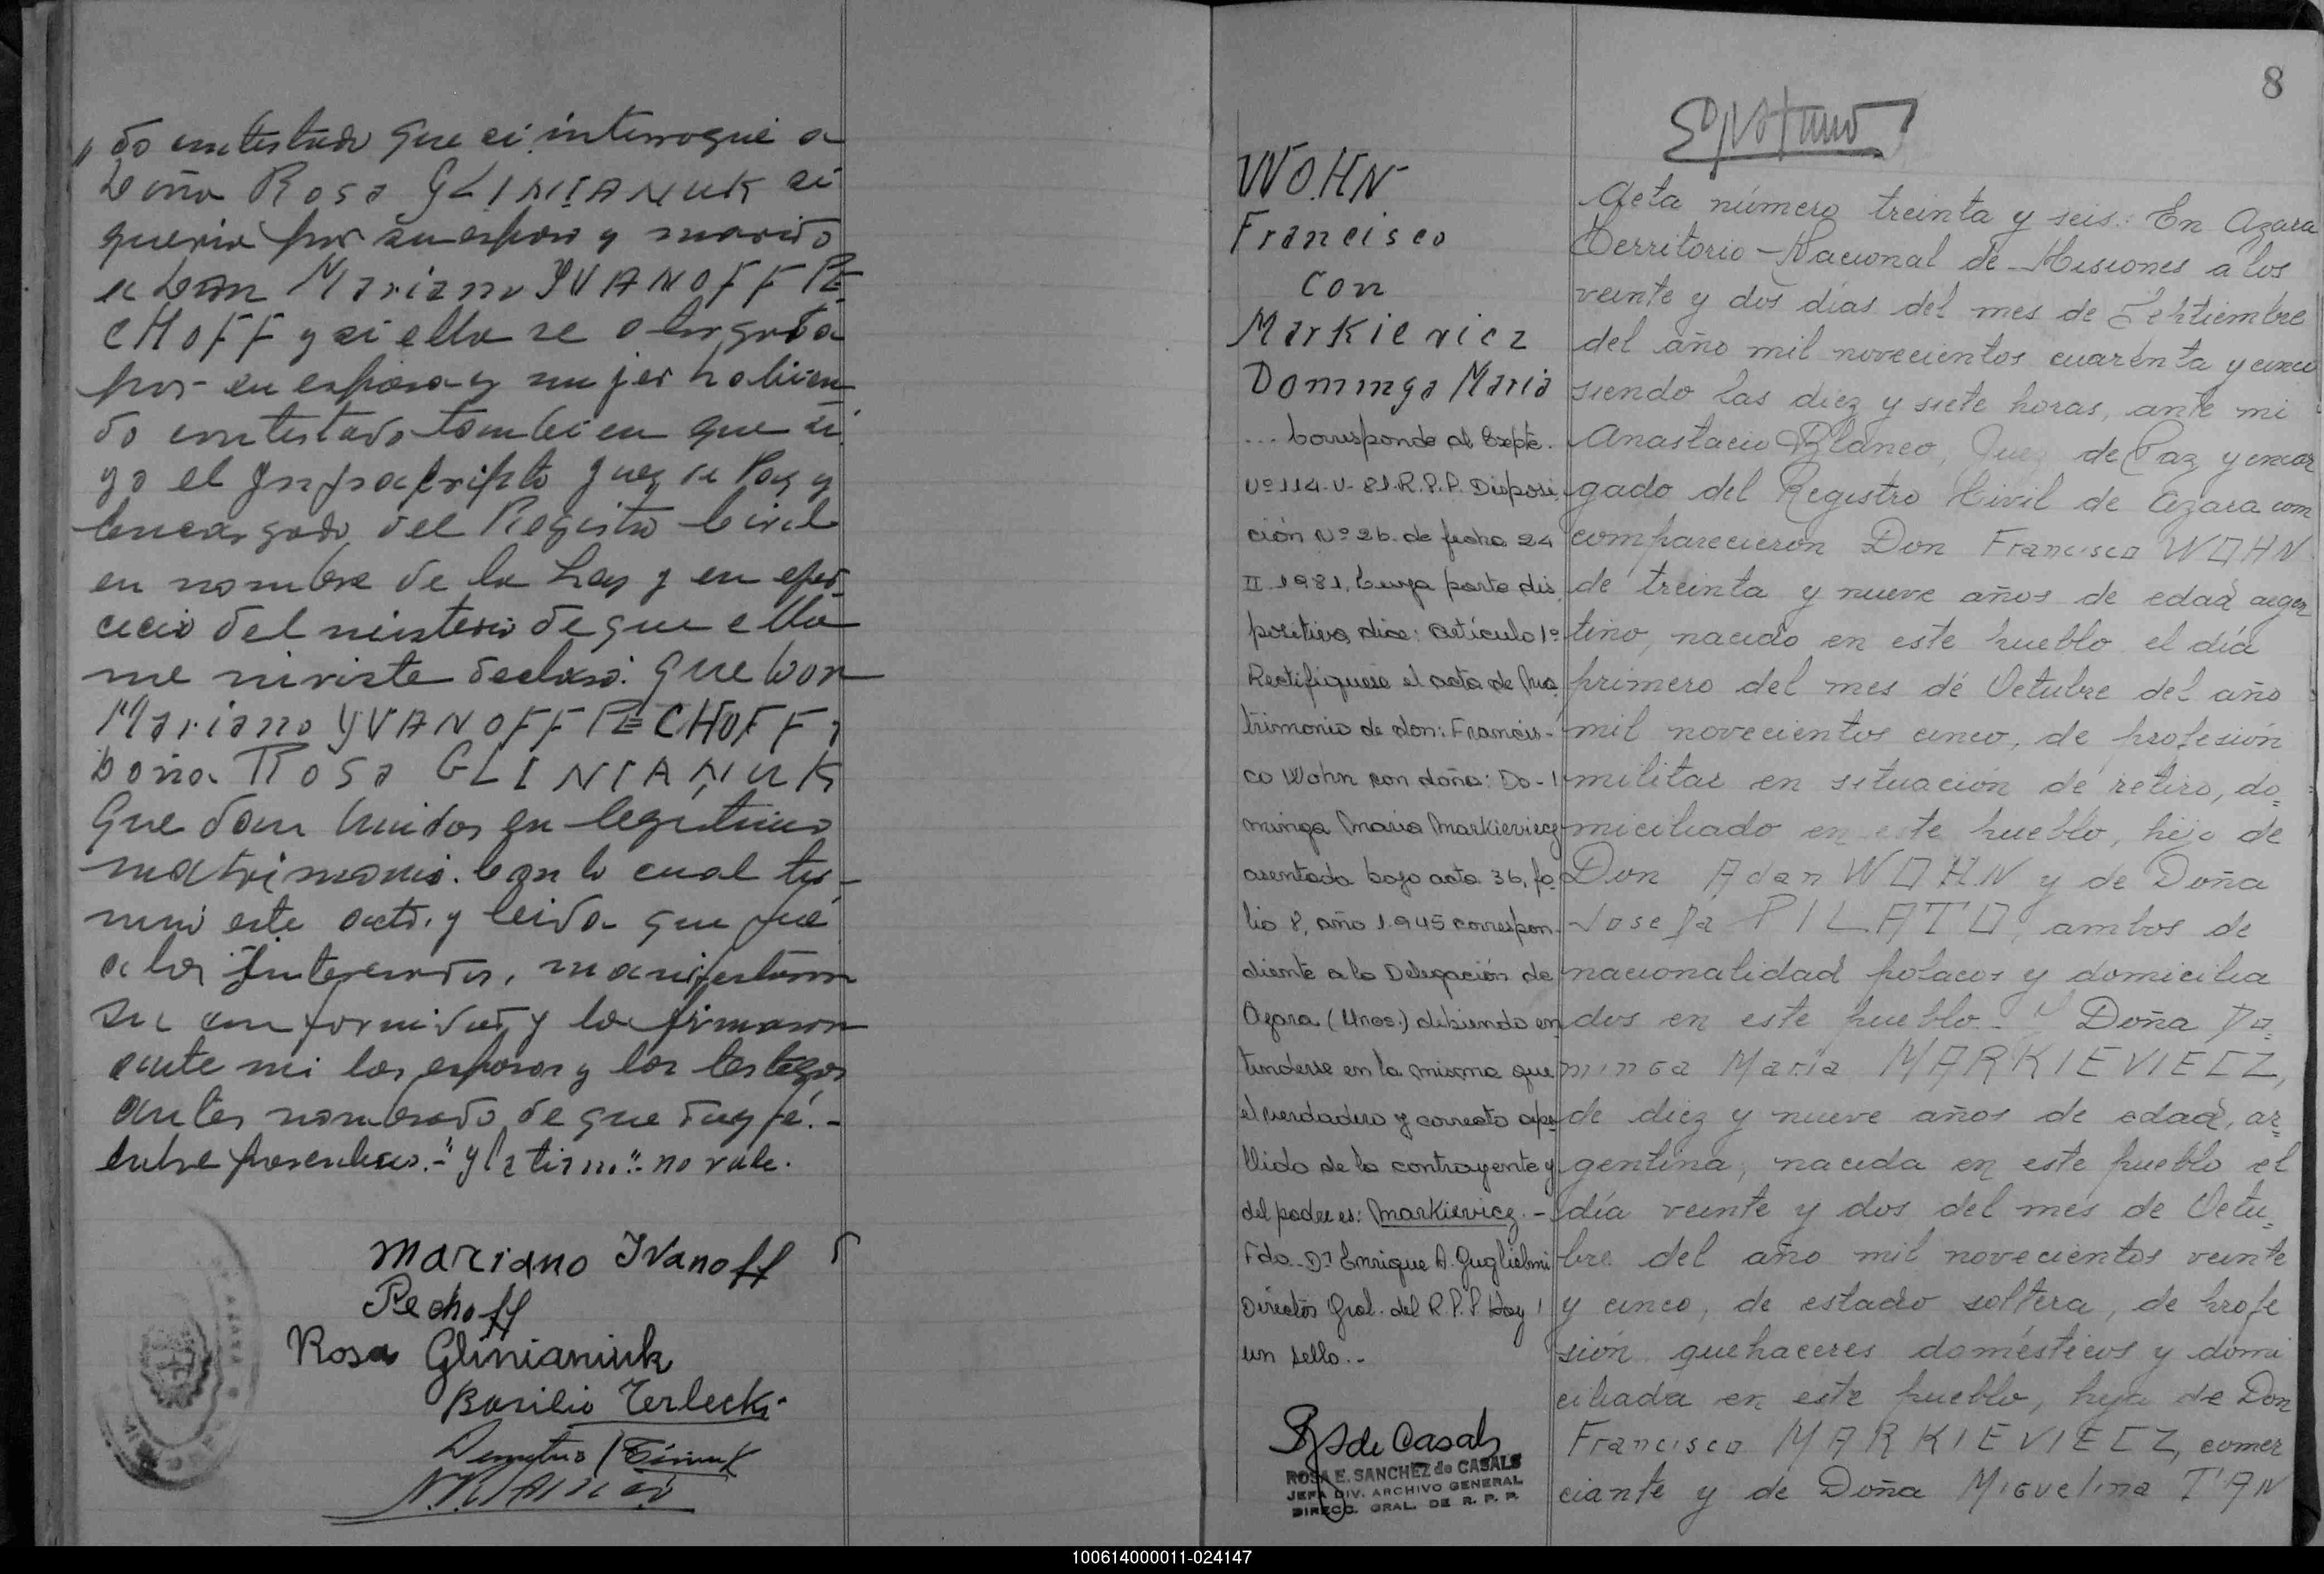 do contestado que si interrogué a
Doña Rosa GLINIANUK si
queria por su esposo y marido
a Don Mariano YVANOFF PE-
CHOFF y si ella se otorgaba
por su esposa y mujer habien-
do contestado tambien que si.
yo el Infrascripto Juez de Paz y
Encargado del Registro Civil
en nombre de la Ley y en ejer-
cicio del ministerio de que ella
me inviste declaro: que Don
Mariano YVANOFF PECHOFF y
Doña Rosa GLINIANUK
Quedan Unidos en legitimo
matrimonio. Con lo cual ter-
minó este acto. y leida que fué
a los Interesados, manifestaron
su conformidad y la firmaron
ante mi los esposos y los testigos
antes nombrado de que doy fé.-
Entre parentesis.- "y la tiene": no vale.
Mariano Ivanoff
Pechoff
Rosa Glinianiuk
Basilio Terlecki
Demetrio
8
WOHN
Francisco
con
Markievicz
Dominga Maria
... Corresponde al Expte.
Nº 114-V-81-R.P.P. Disposi
ción Nº 26. de fecha 24
II 1981, Cuya parte dis
positiva dice: Artículo 1º
Rectifiquese el acta de Ma
trimonio de don: Francis-
co Wohn con doña: Do-
minga Maria Markieviecz
asentada bajo acta 36, fo-
lio 8, año 1.945 correspon-
diente a la Delegación de
Azara (Mnes.) debiendo en
tenderse en la misma que
el verdadero y correcto ape-
llido de la contrayente y
del padre es: Markievicz.-
Fdo. Dr Enrique A. Guglielmi
Director Gral. del R.P.P. Hay
un sello.-
R S de Casals
ROSA E. SANCHEZ de CASALS
JEFA DIV. ARCHIVO GENERAL
DIRECC. GRAL. DE R. P. P.
Acta número treinta y seis: En Azara
Territorio Nacional de Misiones a los
veinte y dos días del mes de Sehtiembre
del año mil novecientos cuarenta y cinco
siendo las diez y siete horas, ante mi
Anastacio Blanco, Juez de Paz y encar
gado del Registro Civil de Azara com
comparecieron Don Francisco WOHN
de treinta y nueve años de edad argen
tino, nacido en este pueblo el día
primero del mes de Octubre del año
mil novecientos cinco, de profesión
militar en situacion de retiro, do-
miciliado en este pueblo, hijo de
Don Adan WOHN y de Doña
Josefa PILATO, ambos de
nacionalidad polacos y domicilia
dos en este pueblo.- Y Doña Do-
minga María MARKIEVIECZ,
de diez y nueve años de edad, ar-
gentina, nacida en este pueblo el
día veinte y dos del mes de Octu-
bre del año mil novecientos veinte
y cinco, de estado soltera, de profe
sión quehaceres domésticos y domi
ciliada en este pueblo, hija de Don
Francisco MARKIEVIECZ, comer
ciante y de Doña Miguelina TAN
100614000011-024147